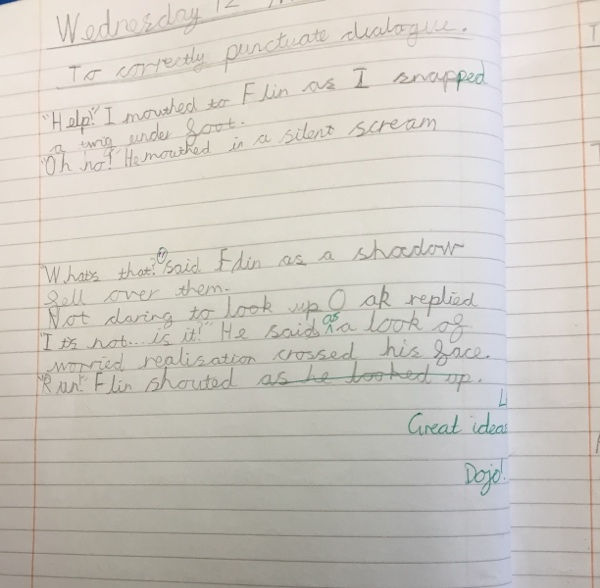 Wednesday 12
To correctly punctuate dialogue.
"Help!" I mouthed to Flin as I snapped
a twig under foot.
"Oh no!" He mouthed in a silent scream
"Whats that?" said Flin as a shadow
fell over them.
Not daring to look up Oak replied
"I ts not... is it!" He said as a look of
worried realisation crossed his face.
"Run!" Flin shouted as he looked up.
Great ideas
Dojo!